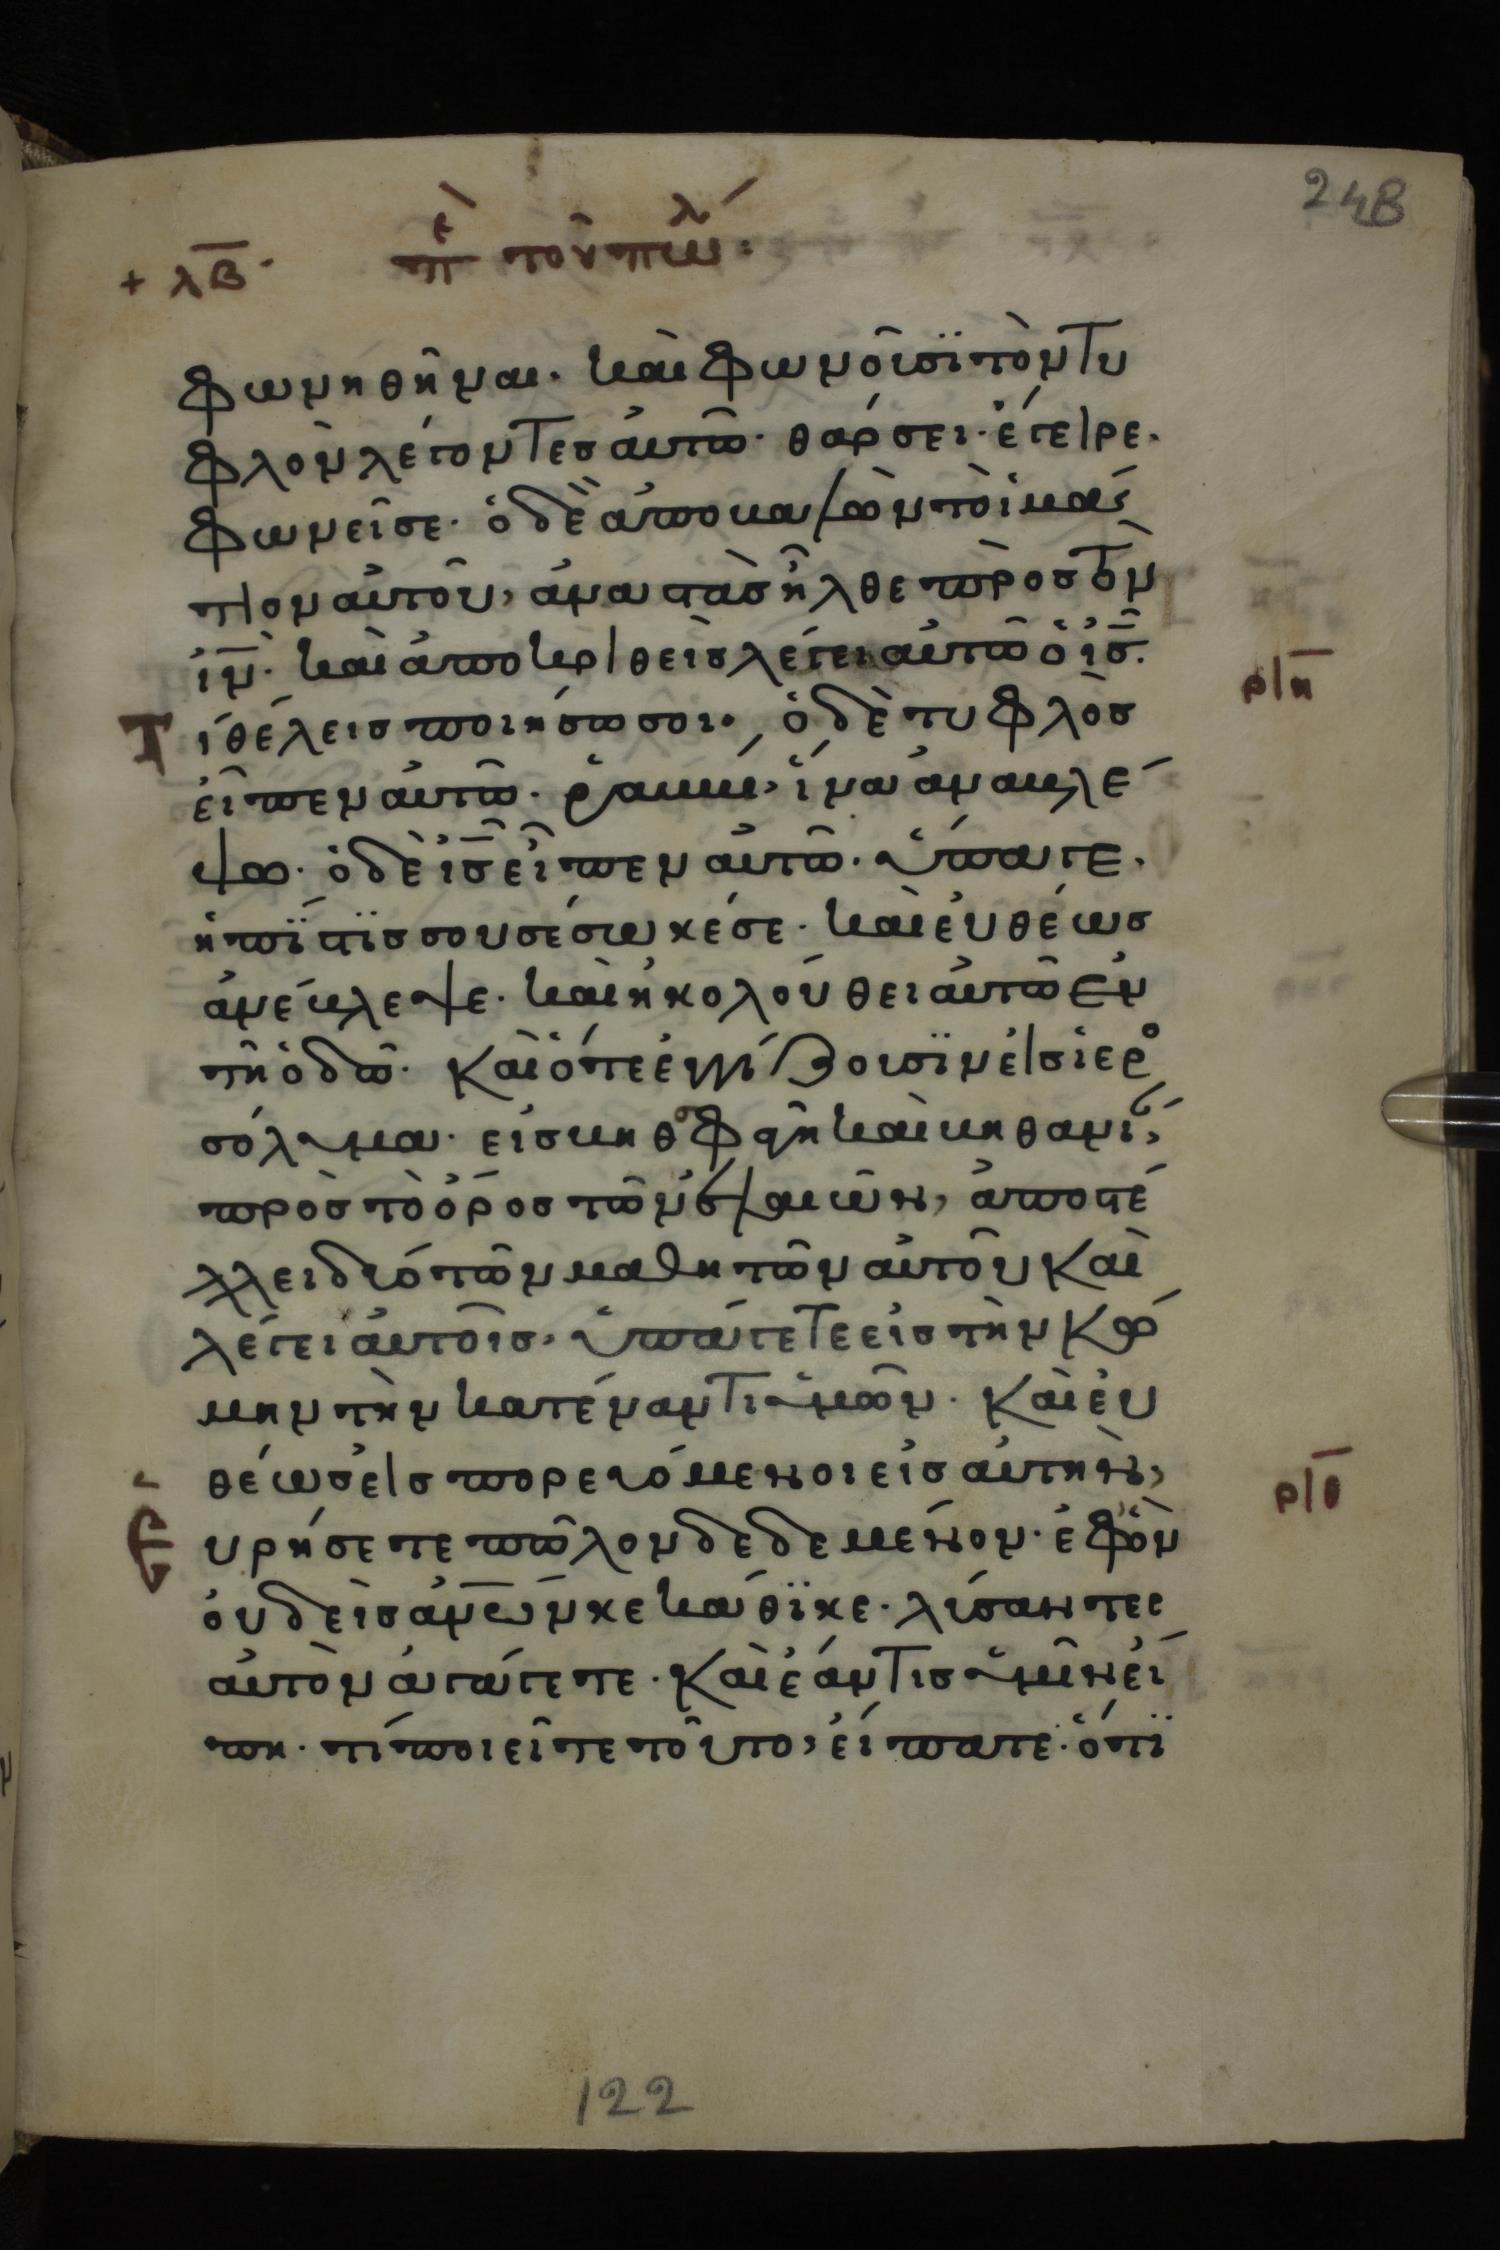 248
+ λβ· πε τοῦ πώλ:
φωνηθῆναι· καὶ φωνοῦσϊ τὸν τυ
φλὸν λέγοντες αὐτῶ· θάρσει· ἔγειρε·
φωνεῖ σε· ὁ δὲ ἀποβαλὼν τὸ ἱμά
τιον αὐτοῦ, ἀναστὰς ἦλθε πρὸς τὸν
ἰν̅· καὶ ἀποκριθεὶς λέγει αὐτῶ ὁ ἰς̅·
ριη
Τ
ί θέλεις ποιήσω σοι· ὁ δὲ τυφλὸς
εἶπεν αὐτῶ· ῥαββί, ἵνα ἀναβλέ
ψω· ὁ δὲ ἰς̅ εἶπεν αὐτῶ· ὕπαγε·
ἡ πίστϊς σου σέσωκέ σε· καὶ εὐθέως
ἀνέβλεψε· καὶ ἠκολούθει αὐτῶ ἐν
τῆ ὁδῶ· καὶ ὅτε ἐγγίζουσϊν εἰς ἱερο
σόλυμα· εἰς βηθσφαγῆ καὶ βηθανί,
πρὸς τὸ ὄρος τῶν ἐλαιῶν, ἀποστέ
λλει δύο τῶν μαθητῶν αὐτοῦ καὶ
λέγει αὐτοῖς, ὑπάγετε εἰς τὴν κώ
μην τὴν κατέναντι ὑμῶν· καὶ εὐ
θέως εἰσπορευόμενοι εἰς αὐτὴν,
ριθ
Ε
υρήσετε πῶλον δεδεμένον· ἐφ ὃν
οὐδεὶς αν̅ω̅ν κεκάθϊκε· λύσαντες
αὐτὸν ἀγάγετε· καὶ ἐάν τις ὑμῖν εἴ
πη· τί ποιεῖτε τοῦτο, εἴπατε· ὅτϊ
122